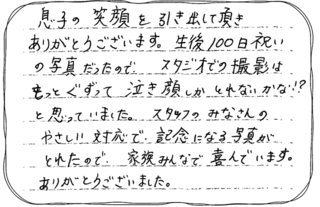 息子の 笑顔 を 引き出して頂き
ありがとうございます。生後100日祝い
の写真だったので、スタジオでの撮影は
もっとぐずって 泣き顔しか とれないかな!?
と思っていました。スタッフの みなさんの
やさしい 対応で、記念になる写真が
とれたので、家族みんなで 喜んでいます。
ありがとうございました。